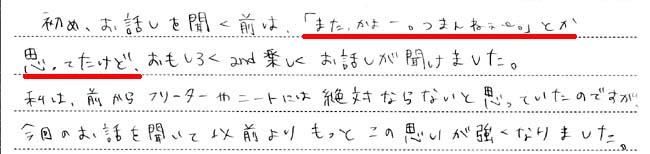 初め、お話しを聞く前は、「また、かよー。つまんねぇe。」とか
思ってたけど、おもしろく and 楽しく お話しが聞けました。
私は、前から フリーターやニートには 絶対ならないと思っていたのですが、
今回のお話を聞いて 以前より もっと この思いが強くなりました。